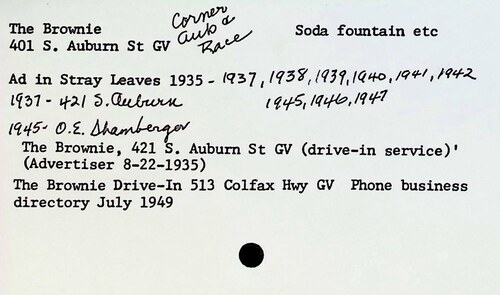 The Brownie
401 S. Auburn St GV
Corner
Aub &
Race
Soda fountain etc
Ad in Stray Leaves 1935 - 1937, 1938, 1939, 1940, 1941, 1942
1937 - 421 S. Auburn
1945, 1946, 1947
1945 - O.E. Shamberger
The Brownie, 421 S. Auburn St GV (drive-in service)'
(Advertiser 8-22-1935)
The Brownie Drive-In 513 Colfax Hwy GV Phone business
directory July 1949